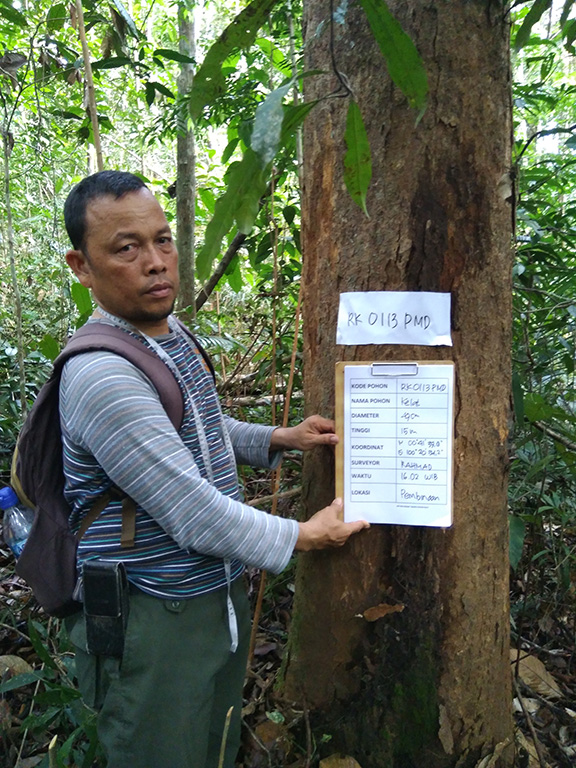 RK 0113 PMD
KODE POHON RK0113PMD
NAMA POHON Kelat
DIAMETER 49cm
TINGGI 15 m
KOORDINAT
SURVEYOR RAHMAD
WAKTU 16.02 WIB
LOKASI Pembinaan